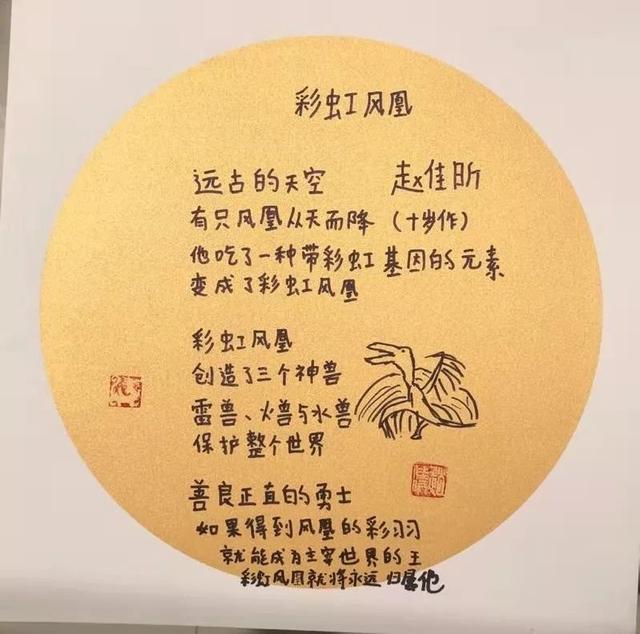 彩虹凤凰
远古的天空 赵佳昕
有只凤凰从天而降（十岁作）
他吃了一种带彩虹基因的元素
变成了彩虹凤凰
彩虹凤凰
创造了三个神兽
雷兽、火兽与水兽
保护整个世界
善良正直的勇士
如果得到凤凰的彩羽
就能成为主宰世界的王
彩虹凤凰就将永远归属他